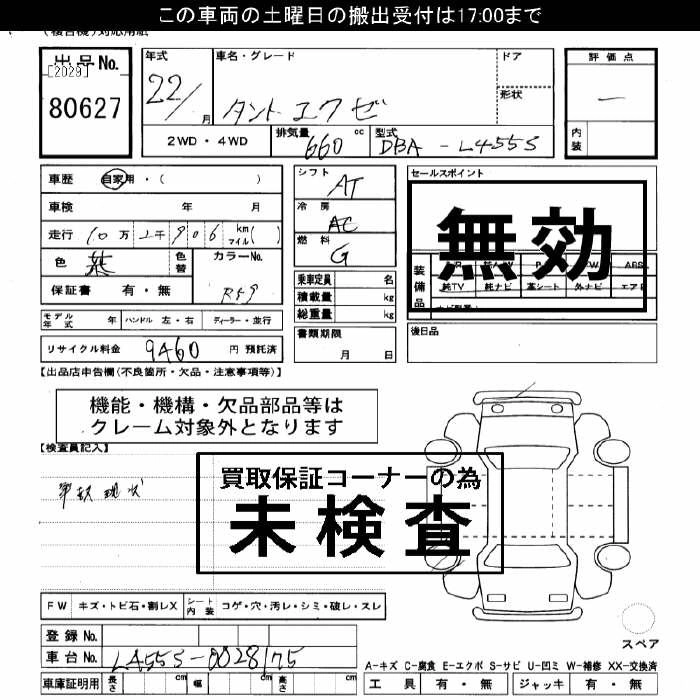 この車両の土曜日の搬出受付は17:00まで
出品No.
[2029]
80627
年式
22/
月
車名・グレード
タント エクゼ
ドア
形状
評価点
—
内装
2WD・4WD
排気量
660 cc
型式
DBA-L455S
車歴 自家用・( )
車検 年 月
走行 10万2千906 km マイル( )
色
紫
色替
カラーNo.
R59
保証書 有・無
シフト
AT
冷房
AC
燃料
G
セールスポイント
無効
装備品
純TV 純ナビ 革シート 外ナビ
乗車定員 名
積載量 kg
総重量 kg
モデル年式 年 ハンドル 左・右 ディーラー・並行
リサイクル料金 9460 円 預託済
書類期限
月 日
後日品
【出品店申告欄(不良箇所・欠品・注意事項等)】
機能・機構・欠品部品等は
クレーム対象外となります
【検査員記入】
事故 現状
買取保証コーナーの為
未検査
FW キズ・トビ石・割レX シート内装 コゲ・穴・汚レ・シミ・破レ・スレ
スペア
登録No.
車台No. L455S-0028175
車庫証明用 長さ cm 幅 cm 高さ cm
A-キズ C-腐食 E-エクボ S-サビ U-凹ミ W-補修 XX-交換済
工具 有・無 ジャッキ 有・無